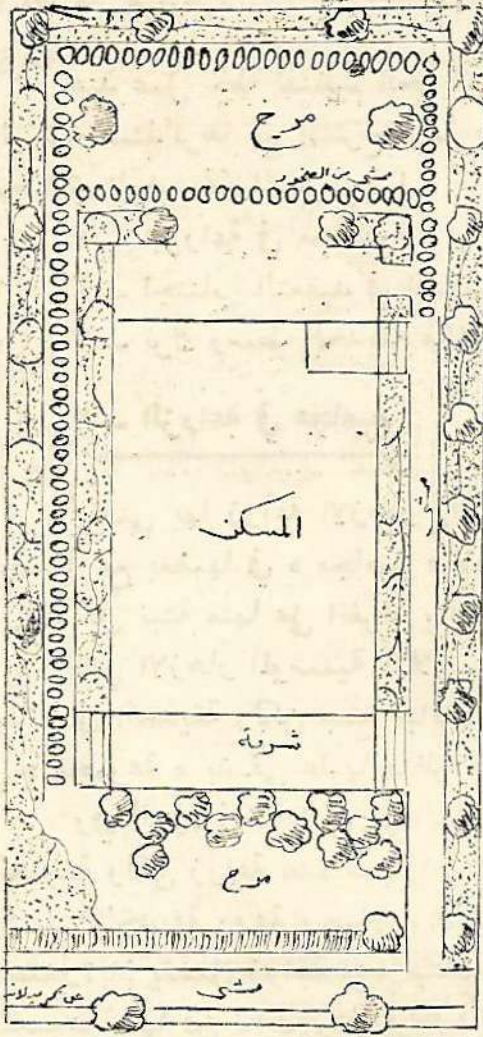 مرج
ممشى من الصخور
المسكن
شرفة
مرج
ممشى